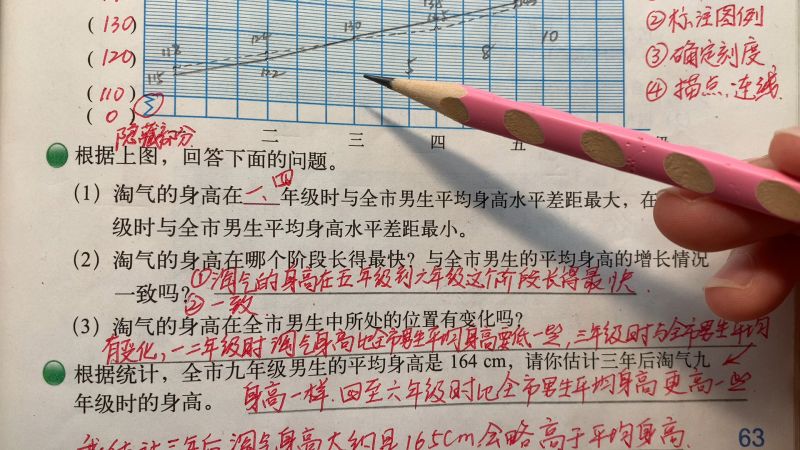 (130)
(120)
(110)
(0)
118
115
124
122
130
138
135
5
8
10
②标注图例
③确定刻度
④描点,连线
隐藏部分
二 三 四 五
根据上图,回答下面的问题。
(1)淘气的身高在一、四年级时与全市男生平均身高水平差距最大,在
级时与全市男生平均身高水平差距最小。
(2)淘气的身高在哪个阶段长得最快?与全市男生的平均身高的增长情况
一致吗?①淘气的身高在五年级到六年级这个阶段长得最快
②一致
(3)淘气的身高在全市男生中所处的位置有变化吗?
有变化,一二年级时淘气身高比全市男生平均身高要低一些,三年级时与全市男生平均
根据统计,全市九年级男生的平均身高是 164 cm,请你估计三年后淘气九
年级时的身高。身高一样.四至六年级时比全市男生平均身高更高一些.
我估计三年后淘气身高大约是165cm会略高于平均身高.
63